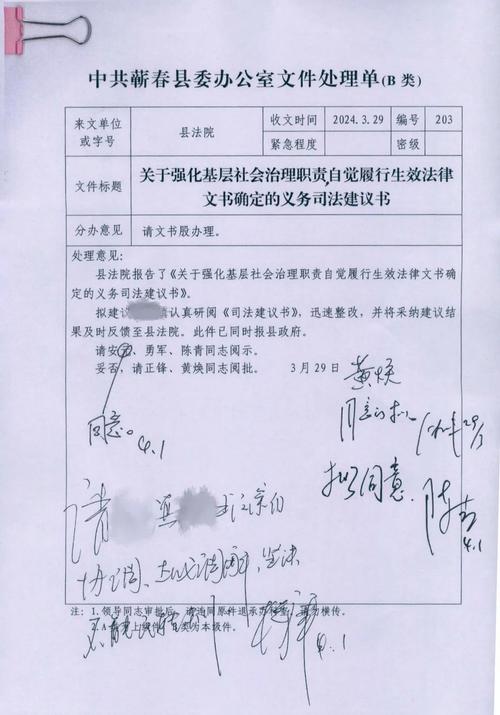 中共蕲春县委办公室文件处理单(B 类)
来文单位或字号 县法院 收文时间 2024.3.29 编号 203
紧急程度 密级
文件标题 关于强化基层社会治理职责自觉履行生效法律
文书确定的义务司法建议书
分办意见 请文书股办理。
处理意见:
县法院报告了《关于强化基层社会治理职责自觉履行生效法律文书确
定的义务司法建议书》。
拟建议 认真研阅《司法建议书》,迅速整改,并将采纳建议结
果及时反馈至县法院。此件已同时报县政府。
请安 、勇军、陈青同志阅示。
妥否,请正锋、黄焕同志阅批。 3 月 29 日
黄焕
同意
4.1
29/3
拟同意
陈青
4.1
请
协调
注:1.领导同志审批后,请 退 ,请勿横传。
2.A 类 上级 类为本级件。
4.1